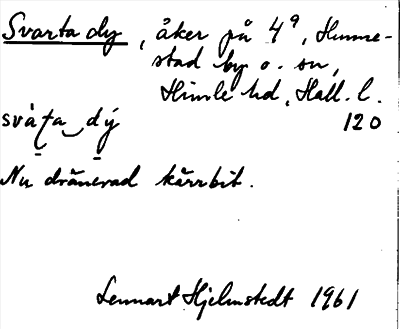 Svarta dy, åker på 4ᵃ, Hunne-
stad by o. sn,
Himle hd, Hall. l.
120
svàṭa‿dý
Nu dränerad kärrbit.
Lennart Hjelmstedt 1961